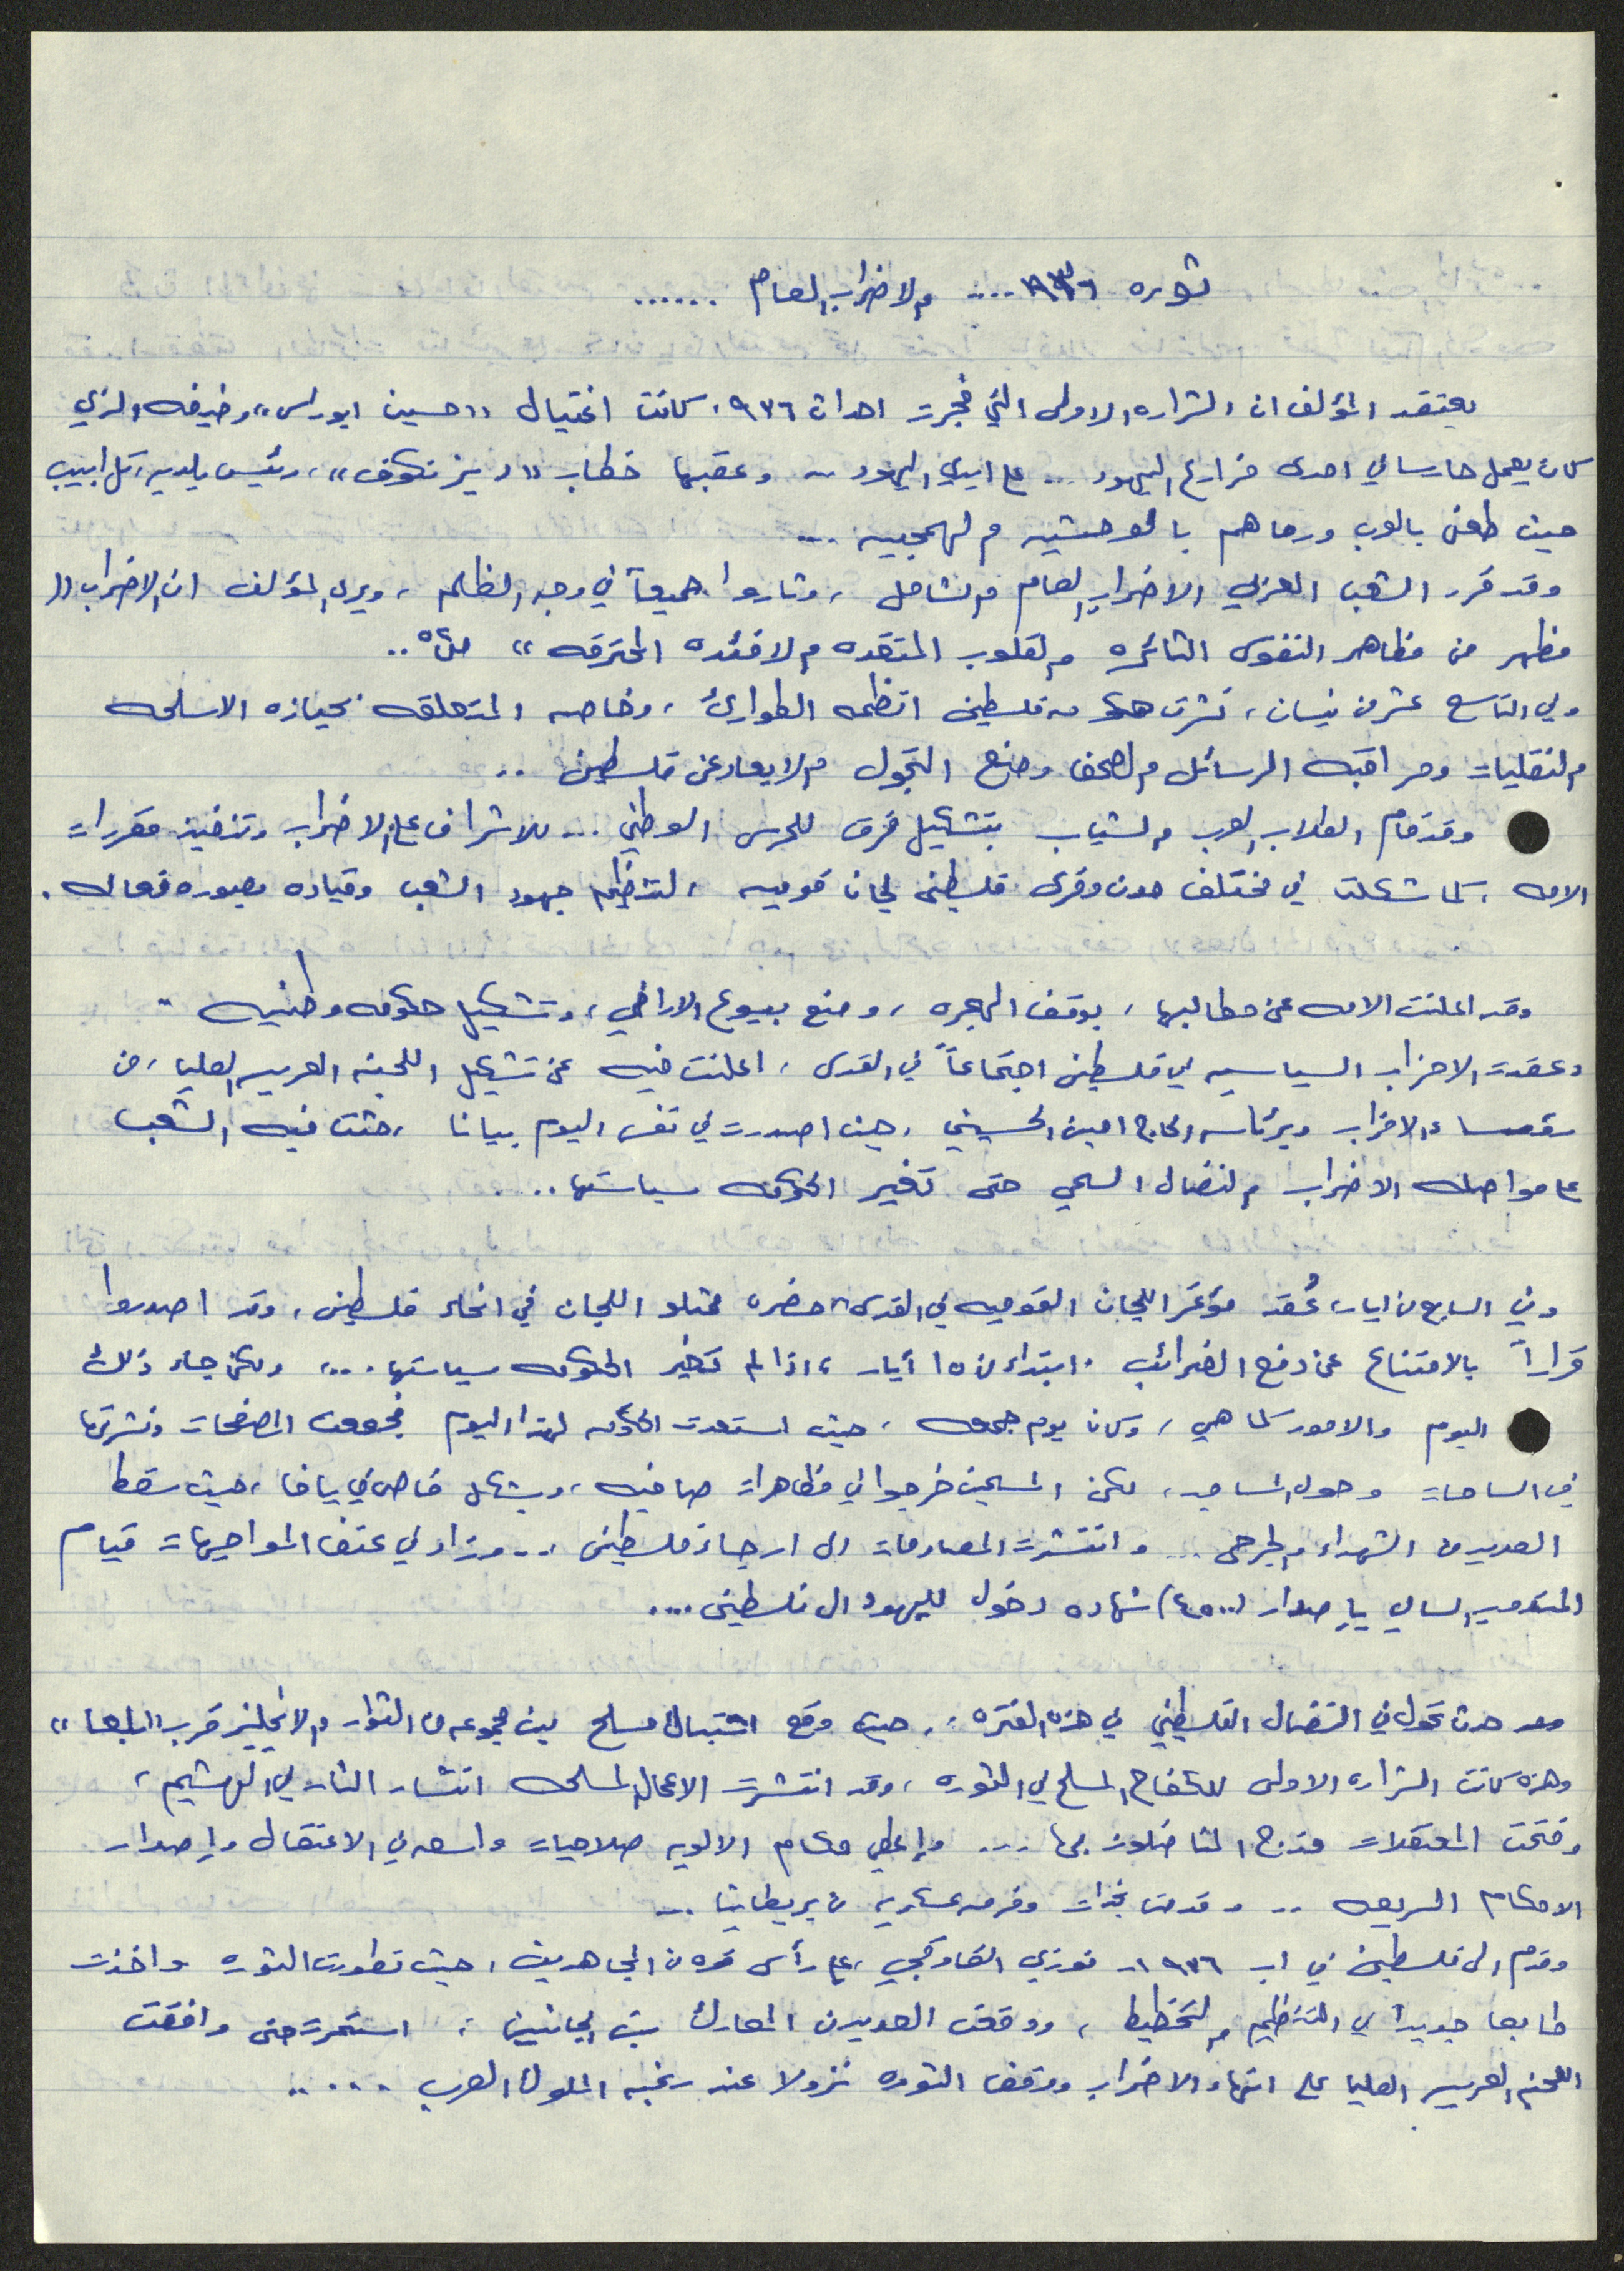 ثوره ٩٣٦ .... والاضراب العام ......
يعتقد المؤلف ان الشراره الاولى التي فجرت احداث ٩٣٦، كانت اغتيال ((حسين ابوراس)) وضيفه الذي
كان يعمل حارسا في احدى مزارع اليهود ... على ايدي اليهود .. وعقبها خطاب ((ديزنكوف))، رئيس بلديه تل ابيب
حيث طعن بالعرب ورماهم بالوحشيه والهمجيه ...
وقد قرر الشعب العربي الاضراب العام والشامل، وثاروا جميعاً في وجه الظلم، ويرى المؤلف ان الاضراب ((
مظهر من مظاهر النفوس الثائره والقلوب المتقده والافئده المحترقه)) ..
وفي التاسع عشر من نيسان، نشرت حكومه فلسطين انظمه الطوارئ، وخاصه المتعلقه بحيازه الاسلحه
والنقليات ومراقبه الرسائل والصحف ومنع التجول والابعاد عن فلسطين ..
وقد قام الطلاب العرب والشباب بتشكيل فرق للحرس الوطني ... للاشراف على الاضراب وتنفيذ مقررات
الامه، كما شكلت في مختلف مدن وقرى فلسطين لجان قوميه، لتنظيم جهود الشعب وقياده بصوره فعاله.
وقد اعلنت الامه عن مطالبها، بوقف الهجره، ومنع بيوع الاراضي، وتشكيل حكومه وطنيه ..
وعقدت الاحزاب السياسيه في فلسطين اجتماعاً في القدس، اعلنت فيه عن تشكيل اللجنه العربيه العليا، من
رؤساء الاحزاب وبرئاسه الحاج امين الحسيني، حيث اصدرت في نفس اليوم بيانا، حثت فيه الشعب
على مواصله الاضراب والنضال السلمي حتى تغير الحكومه سياستها ...
وفي السابع من ايار، عُقد مؤتمر اللجان القوميه في القدس، حضره ممثلو اللجان في انحاء فلسطين، وقد اصدروا
قراراً بالامتناع عن دفع الضرائب، ابتداء من ١٥ أيار، اذا لم تغير الحكومه سياستها ...، ولكن جاء ذلك
اليوم والامور كما هي، وكان يوم جمعه، حيث استعدت الحكومه لهذا اليوم فجمعت المصفحات ونشرتها
في الساحات وحول المساجد، لكن المسلمين خرجوا في مظاهرات صاخبه، وبشكل خاص في يافا، حيث سقط
العديد من الشهداء والجرحى ... وانتشرت المصادمات الى ارجاء فلسطين ... وزاد في عنف المواجهات قيام
المندوب السامي بإصدار (٤٥٠٠) شهاده دخول لليهود الى فلسطين ....
وقد حدث تحول في النضال الفلسطيني في هذه الفتره، حيث وقع اشتباك مسلح بين مجموعه من الثوار والانجليز قرب ((بلعا))
وهذه كانت الشراره الاولى للكفاح المسلح في الثوره، وقد انتشرت الاعمال المسلحه انتشار النار في الهشيم،
وفتحت المعتقلات وزج المناضلون بها ... وإعطي حكام الالويه صلاحيات واسعه في الاعتقال وإصدار
الاحكام السريعه .. وقدمت نجدات وفرق عسكريه من بريطانيا ...
وقدم الى فلسطين في اب ١٩٣٦، فوزي القاوقجي، على رأس قوه من المجاهدين، حيث تطورت الثوره واخذت
طابعا جديداً في التنظيم والتخطيط، ووقعت العديد من المعارك بين الجانبين، استمرت حتى وافقت
اللجنه العربيه العليا على انهاء الاضراب ووقف الثوره نزولا عند رغبه الملوك العرب .....